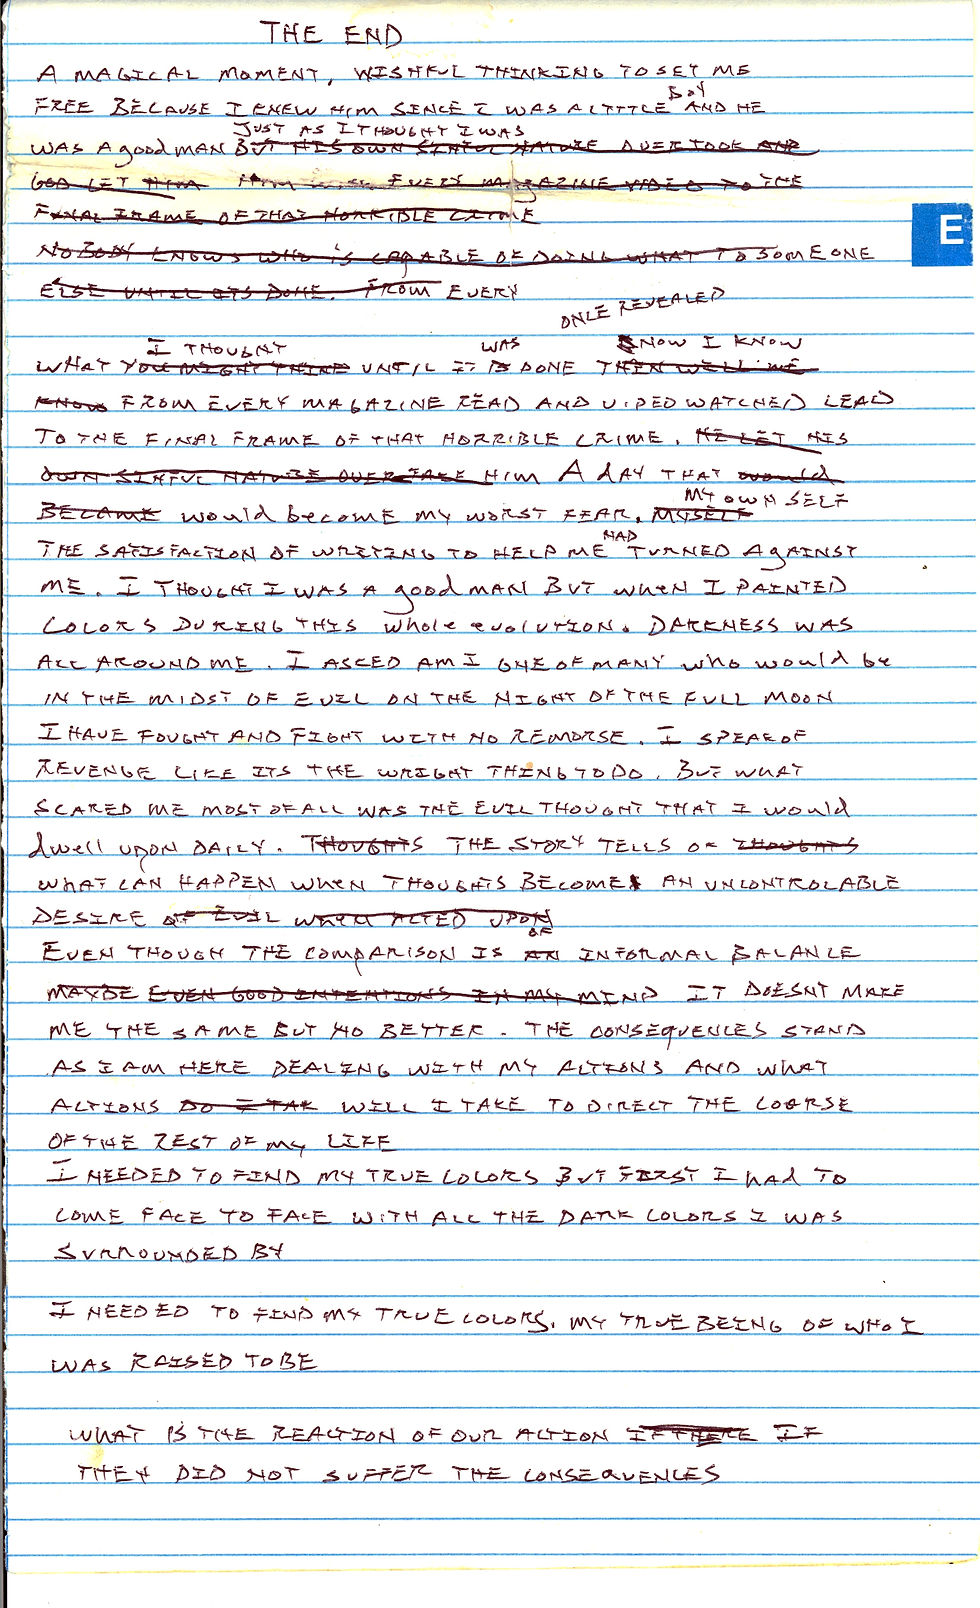 THE END
A MAGICAL MOMENT, WISHFUL THINKING TO SET ME
BOY
FREE BECAUSE I KNEW HIM SINCE I WAS A LITTLE AND HE
JUST AS I THOUGHT I WAS
WAS A good MAN BUT HIS OWN SINFUL NATURE OVER TOOK AND
GOD LET HIM HIM EVERY MAGAZINE VIDEO TO THE
FINAL FRAME OF THAT HORRIBLE CRIME
E
NOBODY KNOWS WHO is CAPABLE OF DOING WHAT TO SOMEONE
ELSE UNTIL ITS DONE. FROM EVERY
ONCE REVEALED
I THOUGHT WAS NOW I KNOW
WHAT YOU MIGHT THINK UNTIL IT IS DONE THEN WELL WE
KNOW FROM EVERY MAGAZINE READ AND VIDEO WATCHED LEAD
TO THE FINAL FRAME OF THAT HORRIBLE CRIME. HE LET HIS
OWN SINFUL NATURE OVER TAKE HIM A dAY THAT would
MY OWN SELF
BECAME would become MY WORST FEAR. MYSELF
HAD
THE SATISFACTION OF WRITING TO HELP ME TURNED AgAINST
ME. I THOUGHT I WAS A good MAN BUT wheN I PAINTED
COLORS DURING THIS whole evolution. DARKNESS WAS
ALL AROUND ME. I ASCED AM I ONE OF MANY who would be
IN THE MIDST OF EVIL ON THE NIGHT OF THE FULL MOON
I HAVE FOUGHT AND FIGHT WITH NO REMORSE. I SPEAK OF
REVENGE LIKE ITS THE WRIGHT THING TO DO. BUT WHAT
SCARED ME MOST OF ALL WAS THE EVIL THOUGHT THAT I would
dwell UPON DAILY. THOUGHTS THE STORY TELLS OF THOUGHTS
WHAT CAN HAPPEN WHEN THOUGHTS BECOMES AN UNCONTROLABLE
DESIRE OF EVIL WHEN ACTED UPON
OF
EVEN THOUGH THE COMPARISON IS AN INFORMAL BALANCE
MAYBE EVEN GOOD INTENTIONS IN MY MIND IT DOESNT MAKE
ME THE SAME BUT NO BETTER. THE CONSEQUENCES STAND
AS I AM HERE DEALING WITH MY ACTIONS AND WHAT
ACTIONS DO I TAK WILL I TAKE TO DIRECT THE COARSE
OF THE REST OF MY LIFE
I NEEDED TO FIND MY TRUE COLORS BUT FIRST I hAd TO
COME FACE TO FACE WITH ALL THE DARK COLORS I WAS
SURROUNDED BY
I NEEDED TO FIND MY TRUE COLORS. MY TRUE BEING OF WHO I
WAS RAISED TO BE
WHAT IS THE REACTION OF OUR ACTION IF THERE IF
THEY DID NOT SUFFER THE CONSEQUENCES